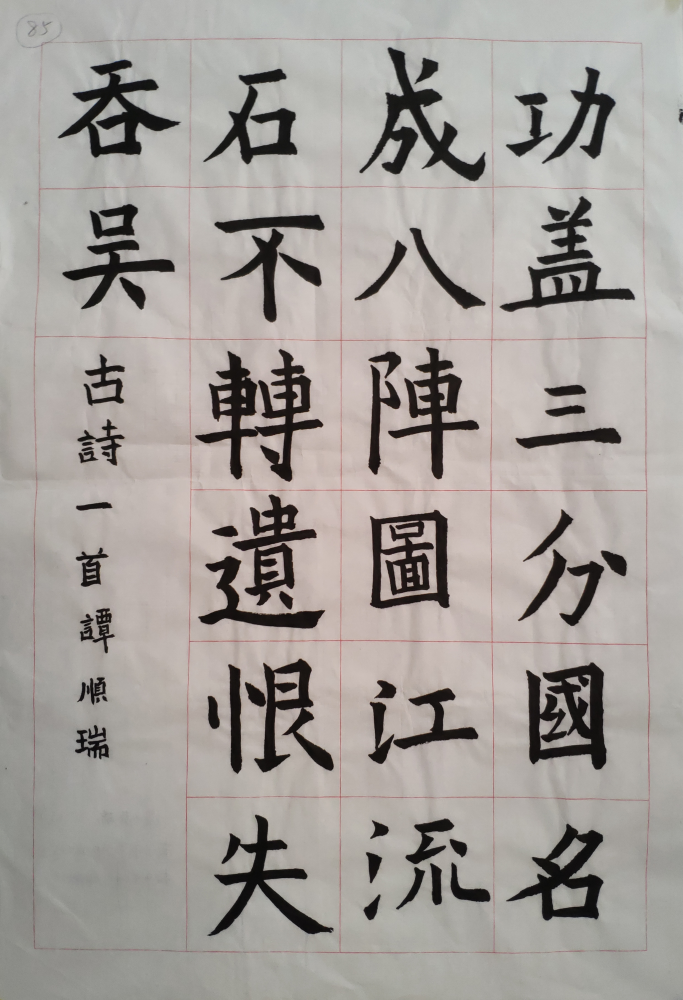 功盖三分國名
成八陣圖江流
石不轉遺恨失
吞吴
古詩一首譚順瑞
85